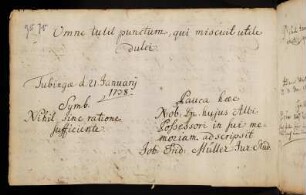 Omne tulit punctum, qui miscuit utile
dulci.
Tubingæ d. 21 January
1738.
Symb.
Nihil sine ratione
sufficiente.
Pauca hæc
Nob. Dn. hujus Albi
Possessori in sui me-
moriam adscripsit
Müller Jur. Stud.